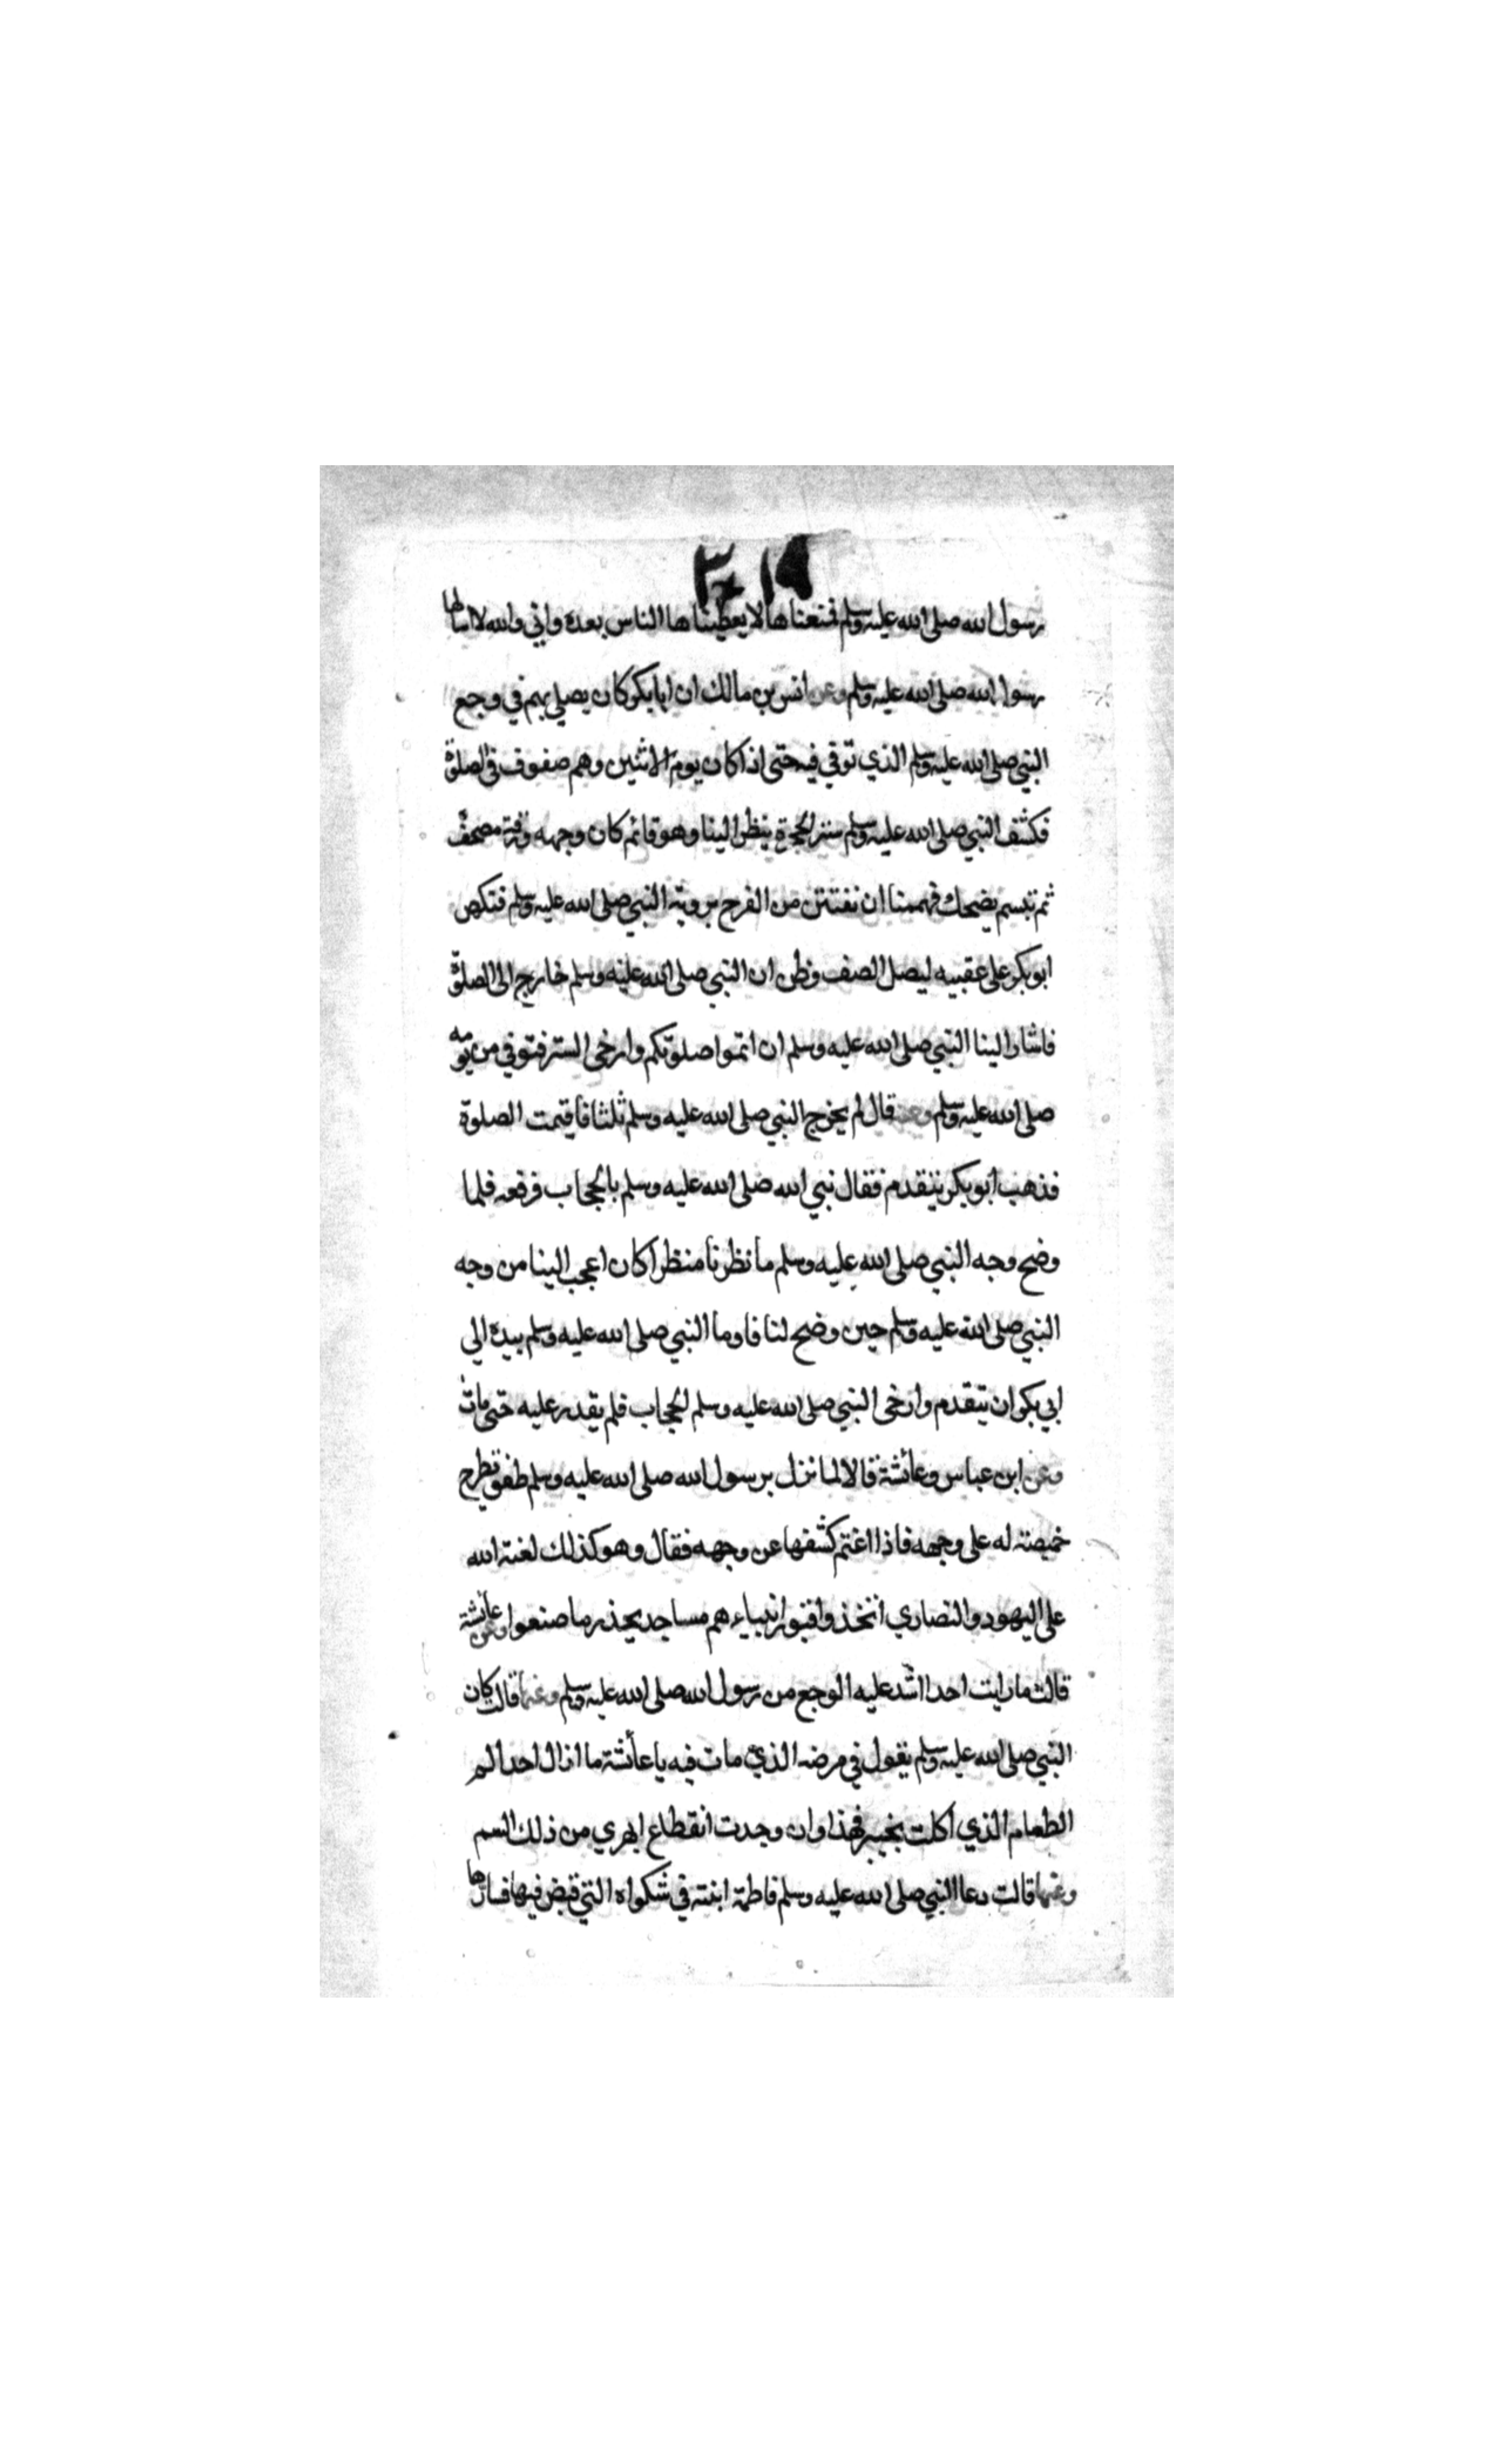 ٣٠١٩
رسول الله صلى الله عليه وسلم فمنعناها لا يعطيناها الناس بعده واني والله لا اسالها
رسول الله صلى الله عليه وسلم وعن انس بن مالك ان ابا بكر كان يصلي بهم في وجع
النبي صلى الله عليه وسلم الذي توفي فيه حتى اذا كان يوم الاثنين وهم صفوف في الصلوة
فكشف النبي صلى الله عليه وسلم ستر الحجرة ينظر الينا وهو قائم كان وجهه ورقة مصحف
ثم تبسم يضحك فهممنا ان نفتتن من الفرح بروية النبي صلى الله عليه وسلم فنكص
ابو بكر على عقبيه ليصل الصف وظن ان النبي صلى الله عليه وسلم خارج الى الصلوة
فاشار الينا النبي صلى الله عليه وسلم ان اتموا صلوتكم وارخى الستر فتوفي من يومه
صلى الله عليه وسلم وعنه قال لم يخرج النبي صلى الله عليه وسلم ثلثا فاقيمت الصلوة
فذهب ابو بكر يتقدم فقال نبي الله صلى الله عليه وسلم بالحجاب فرفعه فلما
وضح وجه النبي صلى الله عليه وسلم ما نظرنا منظرا كان اعجب الينا من وجه
النبي صلى الله عليه وسلم حين وضح لنا فاوما النبي صلى الله عليه وسلم بيده الي
ابي بكر ان يتقدم وارخى النبي صلى الله عليه وسلم الحجاب فلم يقدر عليه حتى مات
وعن ابن عباس وعائشة قالا لما نزل برسول الله صلى الله عليه وسلم طفق يطرح
خميصة له على وجهه فاذا اغتم كشفها عن وجهه فقال وهو كذلك لعنة الله
على اليهود والنصاري اتخذوا قبور انبياءهم مساجد يحذر ما صنعوا وعن عائشة
قالت ما رايت احدا اشد عليه الوجع من رسول الله صلى الله عليه وسلم وعنها قالت كان
النبي صلى الله عليه وسلم يقول في مرضه الذي مات فيه يا عائشة ما ازال اجد الم
الطعام الذي اكلت بخيبر فهذا وان وجدت انقطاع ابهري من ذلك السم
وعنها قالت دعا النبي صلى الله عليه وسلم فاطمة ابنته في شكواه التي قبض فيها فسارها